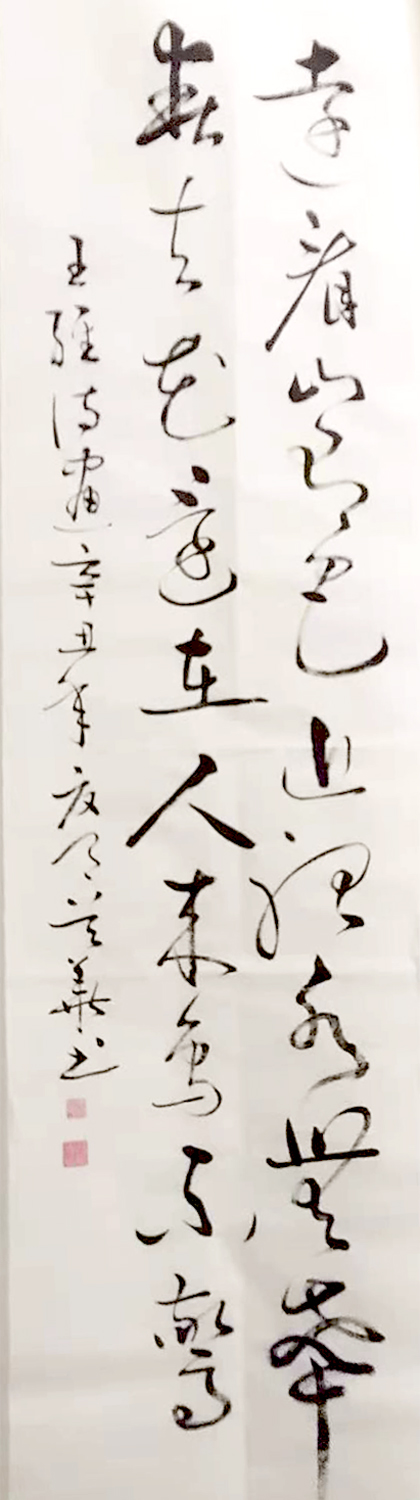 遠看山有色近聽水無聲
春去花還在人來鳥不驚
王維詩畫辛丑年夏月芝華书